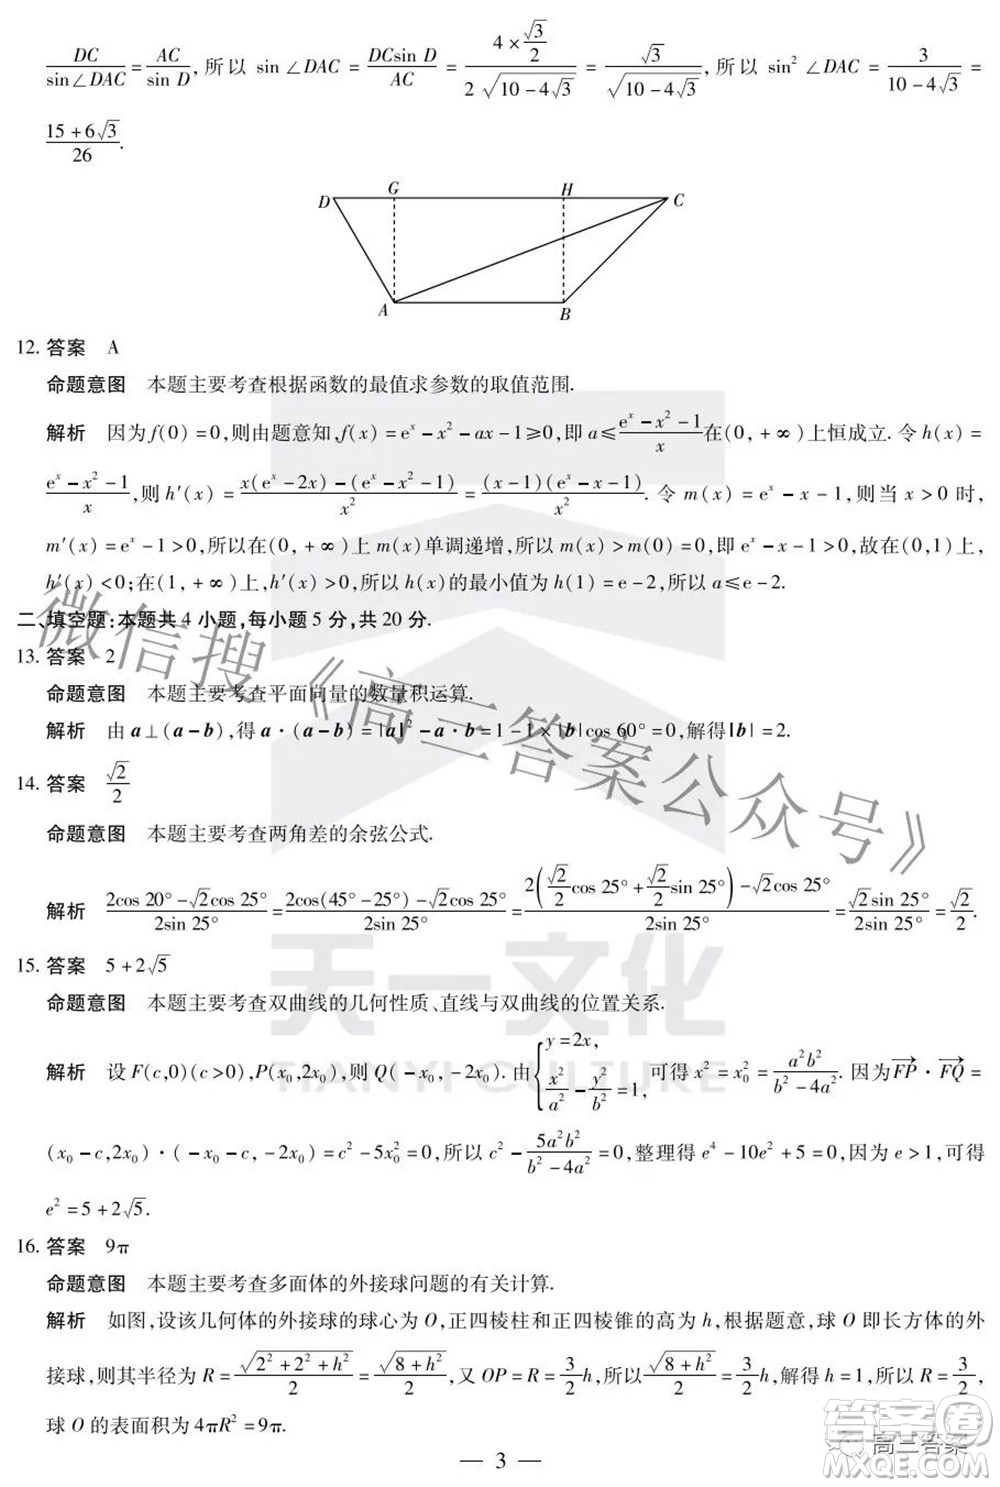 DC/sin∠DAC = AC/sin D, 所以 sin∠DAC = DCsin D/AC = (4×√3/2)/(2√(10-4√3)) = √3/√(10-4√3), 所以 sin²∠DAC = 3/(10-4√3) =
(15+6√3)/26.
D G H C
A B
12. 答案 A
命题意图 本题主要考查根据函数的最值求参数的取值范围.
解析 因为 f(0)=0,则由题意知,f(x)=eˣ-x²-ax-1≥0,即 a≤(eˣ-x²-1)/x 在(0,+∞)上恒成立. 令 h(x)=
(eˣ-x²-1)/x,则 h′(x)=[x(eˣ-2x)-(eˣ-x²-1)]/x²=(x-1)(eˣ-x-1)/x². 令 m(x)=eˣ-x-1,则当 x>0 时,
m′(x)=eˣ-1>0,所以在(0,+∞)上 m(x)单调递增,所以 m(x)>m(0)=0,即 eˣ-x-1>0,故在(0,1)上,
h′(x)<0;在(1,+∞)上,h′(x)>0,所以 h(x)的最小值为 h(1)=e-2,所以 a≤e-2.
二、填空题:本题共 4 小题,每小题 5 分,共 20 分.
13. 答案 2
命题意图 本题主要考查平面向量的数量积运算.
解析 由 a⊥(a-b),得 a·(a-b)=|a|²-a·b=1-1×|b|cos 60°=0,解得|b|=2.
14. 答案 √2/2
命题意图 本题主要考查两角差的余弦公式.
解析 (2cos 20°-√2cos 25°)/(2sin 25°)=(2cos(45°-25°)-√2cos 25°)/(2sin 25°)=(2(√2/2 cos 25°+√2/2 sin 25°)-√2cos 25°)/(2sin 25°)=√2sin 25°/(2sin 25°)=√2/2.
15. 答案 5+2√5
命题意图 本题主要考查双曲线的几何性质、直线与双曲线的位置关系.
解析 设 F(c,0)(c>0),P(x₀,2x₀),则 Q(-x₀,-2x₀). 由{y=2x, x²/a²-y²/b²=1, 可得 x²=x₀²=a²b²/(b²-4a²). 因为 FP→·FQ→=
(x₀-c,2x₀)·(-x₀-c,-2x₀)=c²-5x₀²=0,所以 c²-5a²b²/(b²-4a²)=0,整理得 e⁴-10e²+5=0,因为 e>1,可得
e²=5+2√5.
16. 答案 9π
命题意图 本题主要考查多面体的外接球问题的有关计算.
解析 如图,设该几何体的外接球的球心为 O,正四棱柱和正四棱锥的高为 h,根据题意,球 O 即长方体的外
接球,则其半径为 R=√(2²+2²+h²)/2=√(8+h²)/2,又 OP=R=3/2 h,所以 √(8+h²)/2=3/2 h,解得 h=1,所以 R=3/2,
球 O 的表面积为 4πR²=9π.
— 3 —
微信搜《高三答案公众号》
天一文化
TIANYI CULTURE
答案圈
高三答案
MXQE.COM